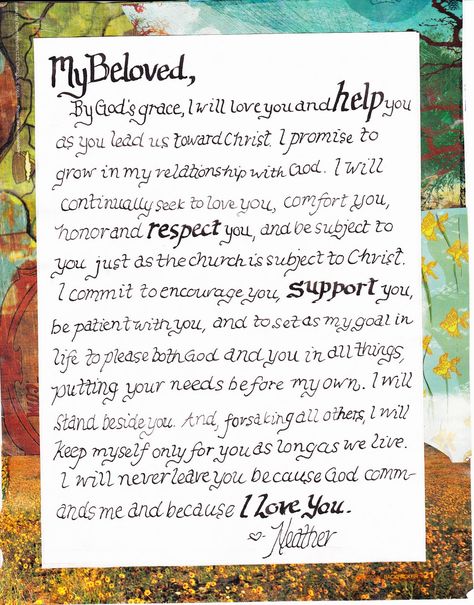 My Beloved,
By God's grace, I will love you and help you
as you lead us toward Christ. I promise to
grow in my relationship with God. I will
continually seek to love you, comfort you,
honor and respect you, and be subject to
you just as the church is subject to Christ.
I commit to encourage you, support you,
be patient with you, and to set as my goal in
life to please both God and you in all things,
putting your needs before my own. I will
stand beside you. And, forsaking all others, I will
keep myself only for you as long as we live.
I will never leave you because God comm-
ands me and because I Love You.
Heather
BACKPACKER 21